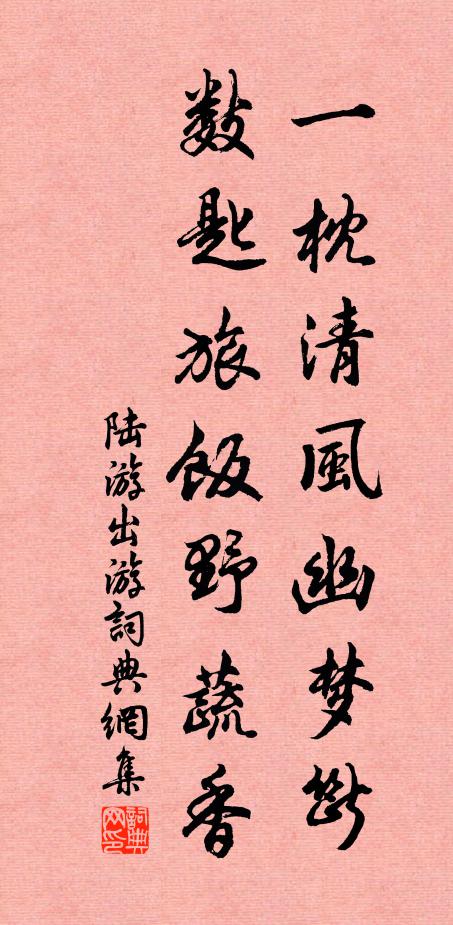 一枕清風幽梦断
数匙旅飯野蔬香
陆游出游詞典網集
詞典网印